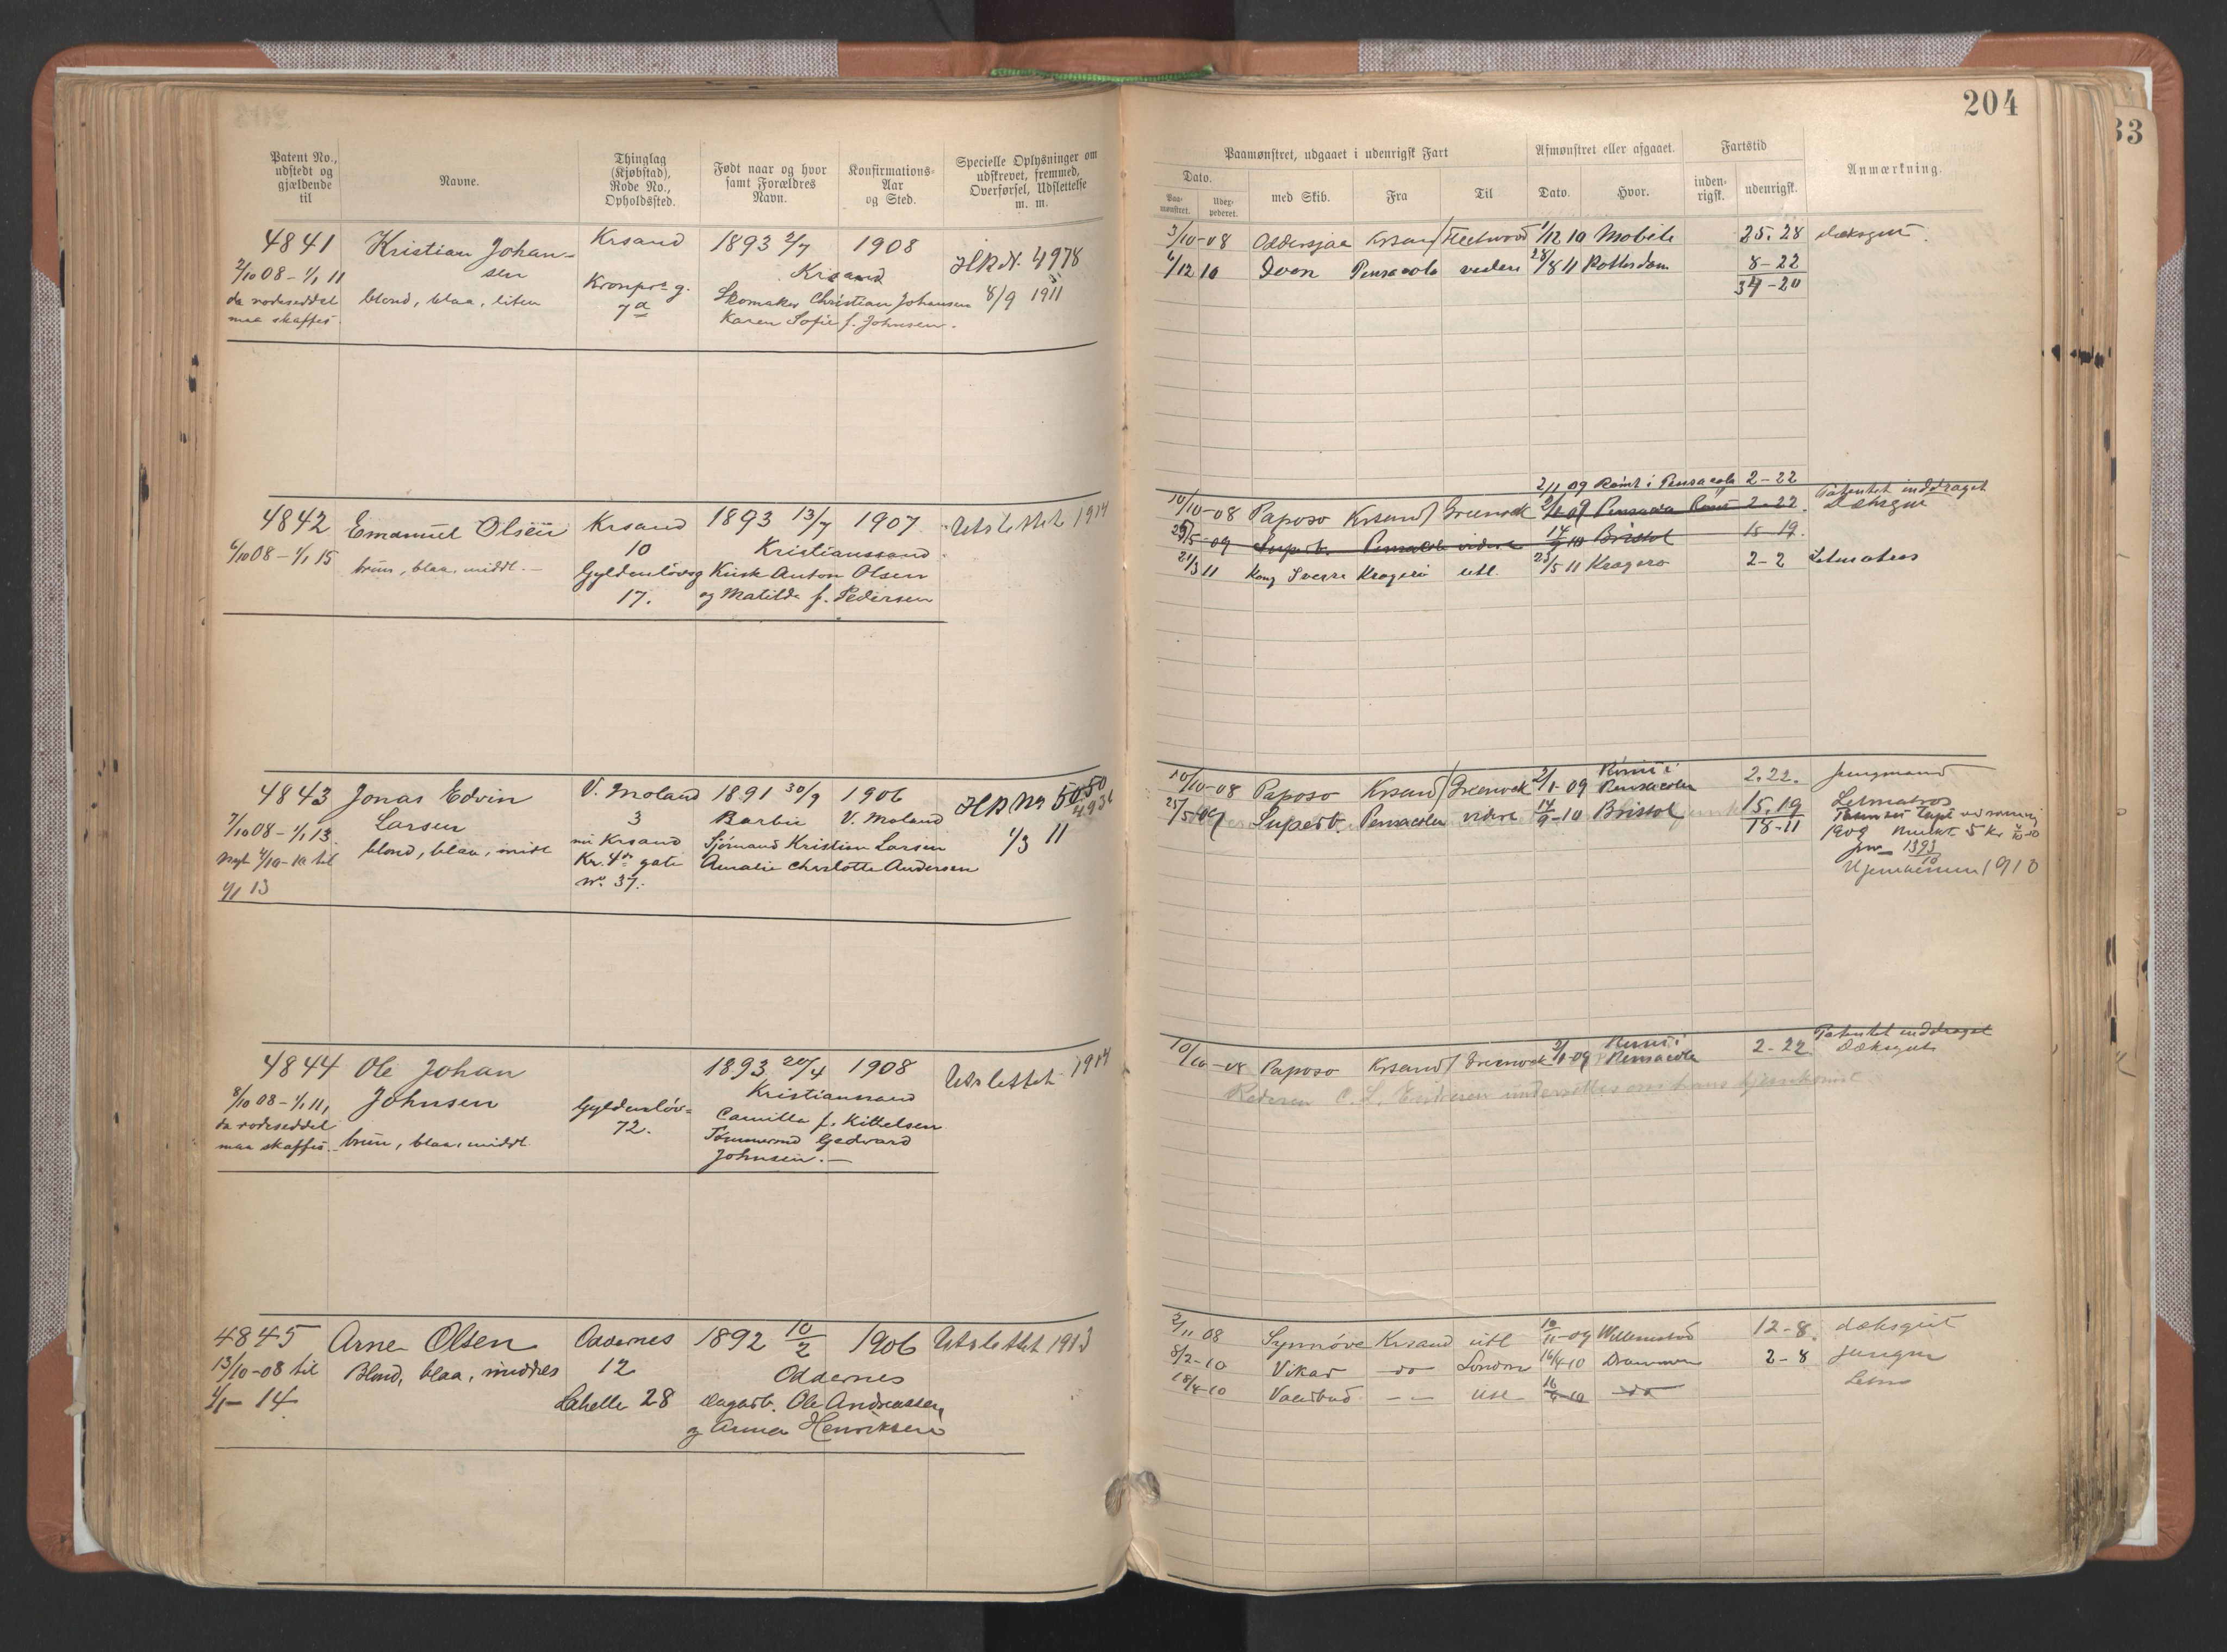 204
33
Patent No., udstedt og gjældende til
Navne.
Thinglag (Kjøbstad), Rode No., Opholdssted.
Født naar og hvor samt Forældres Navn.
Konfirmations-Aar og Sted.
Specielle Oplysninger om udskrevet, fremmed, Overførsel, Udslettelse m. m.
Paamønstret, udgaaet i udenrigsk Fart
Afmønstret eller afgaaet.
Fartstid
Anmærkning.
Dato.
Paa-mønstret.
Udex-pederet.
med Skib.
Fra
Til
Dato.
Hvor.
inden-rigsk.
udenrigsk.
4841 Kristian Johan- Krsand 1893 2/7 1908 4978
2/10 08 – 1/1 11 sen Kronprs g. Krsand
da rodeseddel blond, blaa, liten 7a Skomaker Christian Johansen 8/9 1911
maa skaffes. Karen Sofie f. Johnsen.
3/10-08 Oddersjaa Krsand Fleetwood 1/12 10 Mobile 25.28 dæksgut.
6/12 10 Pensacola videre 28/8 11 Rotterdam 8-22
34-20
4842 Emanuel Olsen Krsand 1893 13/7 1907 Utslettet 1914
6/10 08 – 1/1 15 10 Kristianssand
brun, blaa, middl. Gyldenløvsg Kusk Anton Olsen
17. og Matilda f. Pedersen
2/1 09 Rømt i Pensacola 2-22 Patentet inddraget
10/10-08 Paposo Krsand Greenock 2/1 09 Pensacola Rømt 2-22. Dæksgut
25/5-09 Superb. Pensacola videre 14/9 10 Bristol 15-19.
21/3 11 Kong Sverre Kragerø utl. 23/5 11 Kragerø 2-2 Letmatros
4843 Jonas Edvin V. Moland 1891 30/9 1906 5050
7/10 08 – 1/1 13. Larsen 3 Barbu V. Moland
blond, blaa, midl nu Krsand Sjømand Kristian Larsen 1/3 11
Kr. 4des gate Amalie Charlotte Andersen
1/1 13 No. 37.
10/10-08 Paposo Krsand Greenock 2/1-09 Rømt i Pensacola 2.22. Jungmand
25/5 09 Superb. Pensacola videre 14/9-10 Bristol 15.19 Letmatros
18-11
1909 5 Kr
1393
Hjemkommen 1910
4844 Ole Johan 1893 20/4 1908 Utslettet 1914
8/10 08 – 1/1 11, Johnsen Gyldenløv- Kristianssand
da rodeseddel 72. Camilla f. Kittelsen
maa skaffes. brun, blaa, middl. Tømmermd Gedvard
Johnsen.
10/10-08 Paposo Krsand Greenock 2/1-09 Rømt i Pensacola 2-22 Patentet inddraget
Dæksgut
Rederen C. L. underrettes om hans hjemkomst
4845 Arne Olsen Oddernes 1892 10/2 1906 Utslettet 1913
13/10-08 til Blond, blaa, middels 12 Oddernes
1/1 – 14 Lahelle 28 Dagarb. Ole Andreassen,
og Anna Henriksen
2/11 08 Synnøve Krsand utl 10/11-09 Willemstad 12-8. dæksgut
8/2-10 Vikar do London 16/4-10 Drammen 2-8 jungm
18/4-10 Vaarbud. – – utl do Letm